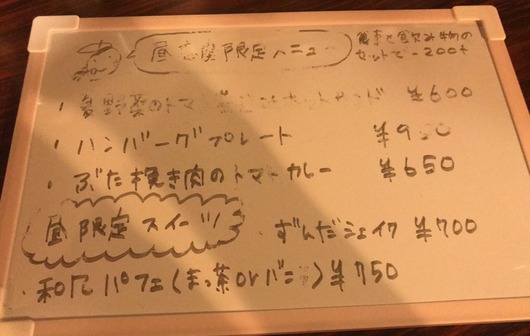 昼 限定メニュー
食事と飲み物の
セットで-200円
・夏野菜のトマ ¥600
・ハンバーグプレート ¥950
・ぶた挽き肉のトマトカレー ¥650
昼 限定スイーツ
・ずんだシェイク ¥700
・和風パフェ(まっ茶orバニラ) ¥750